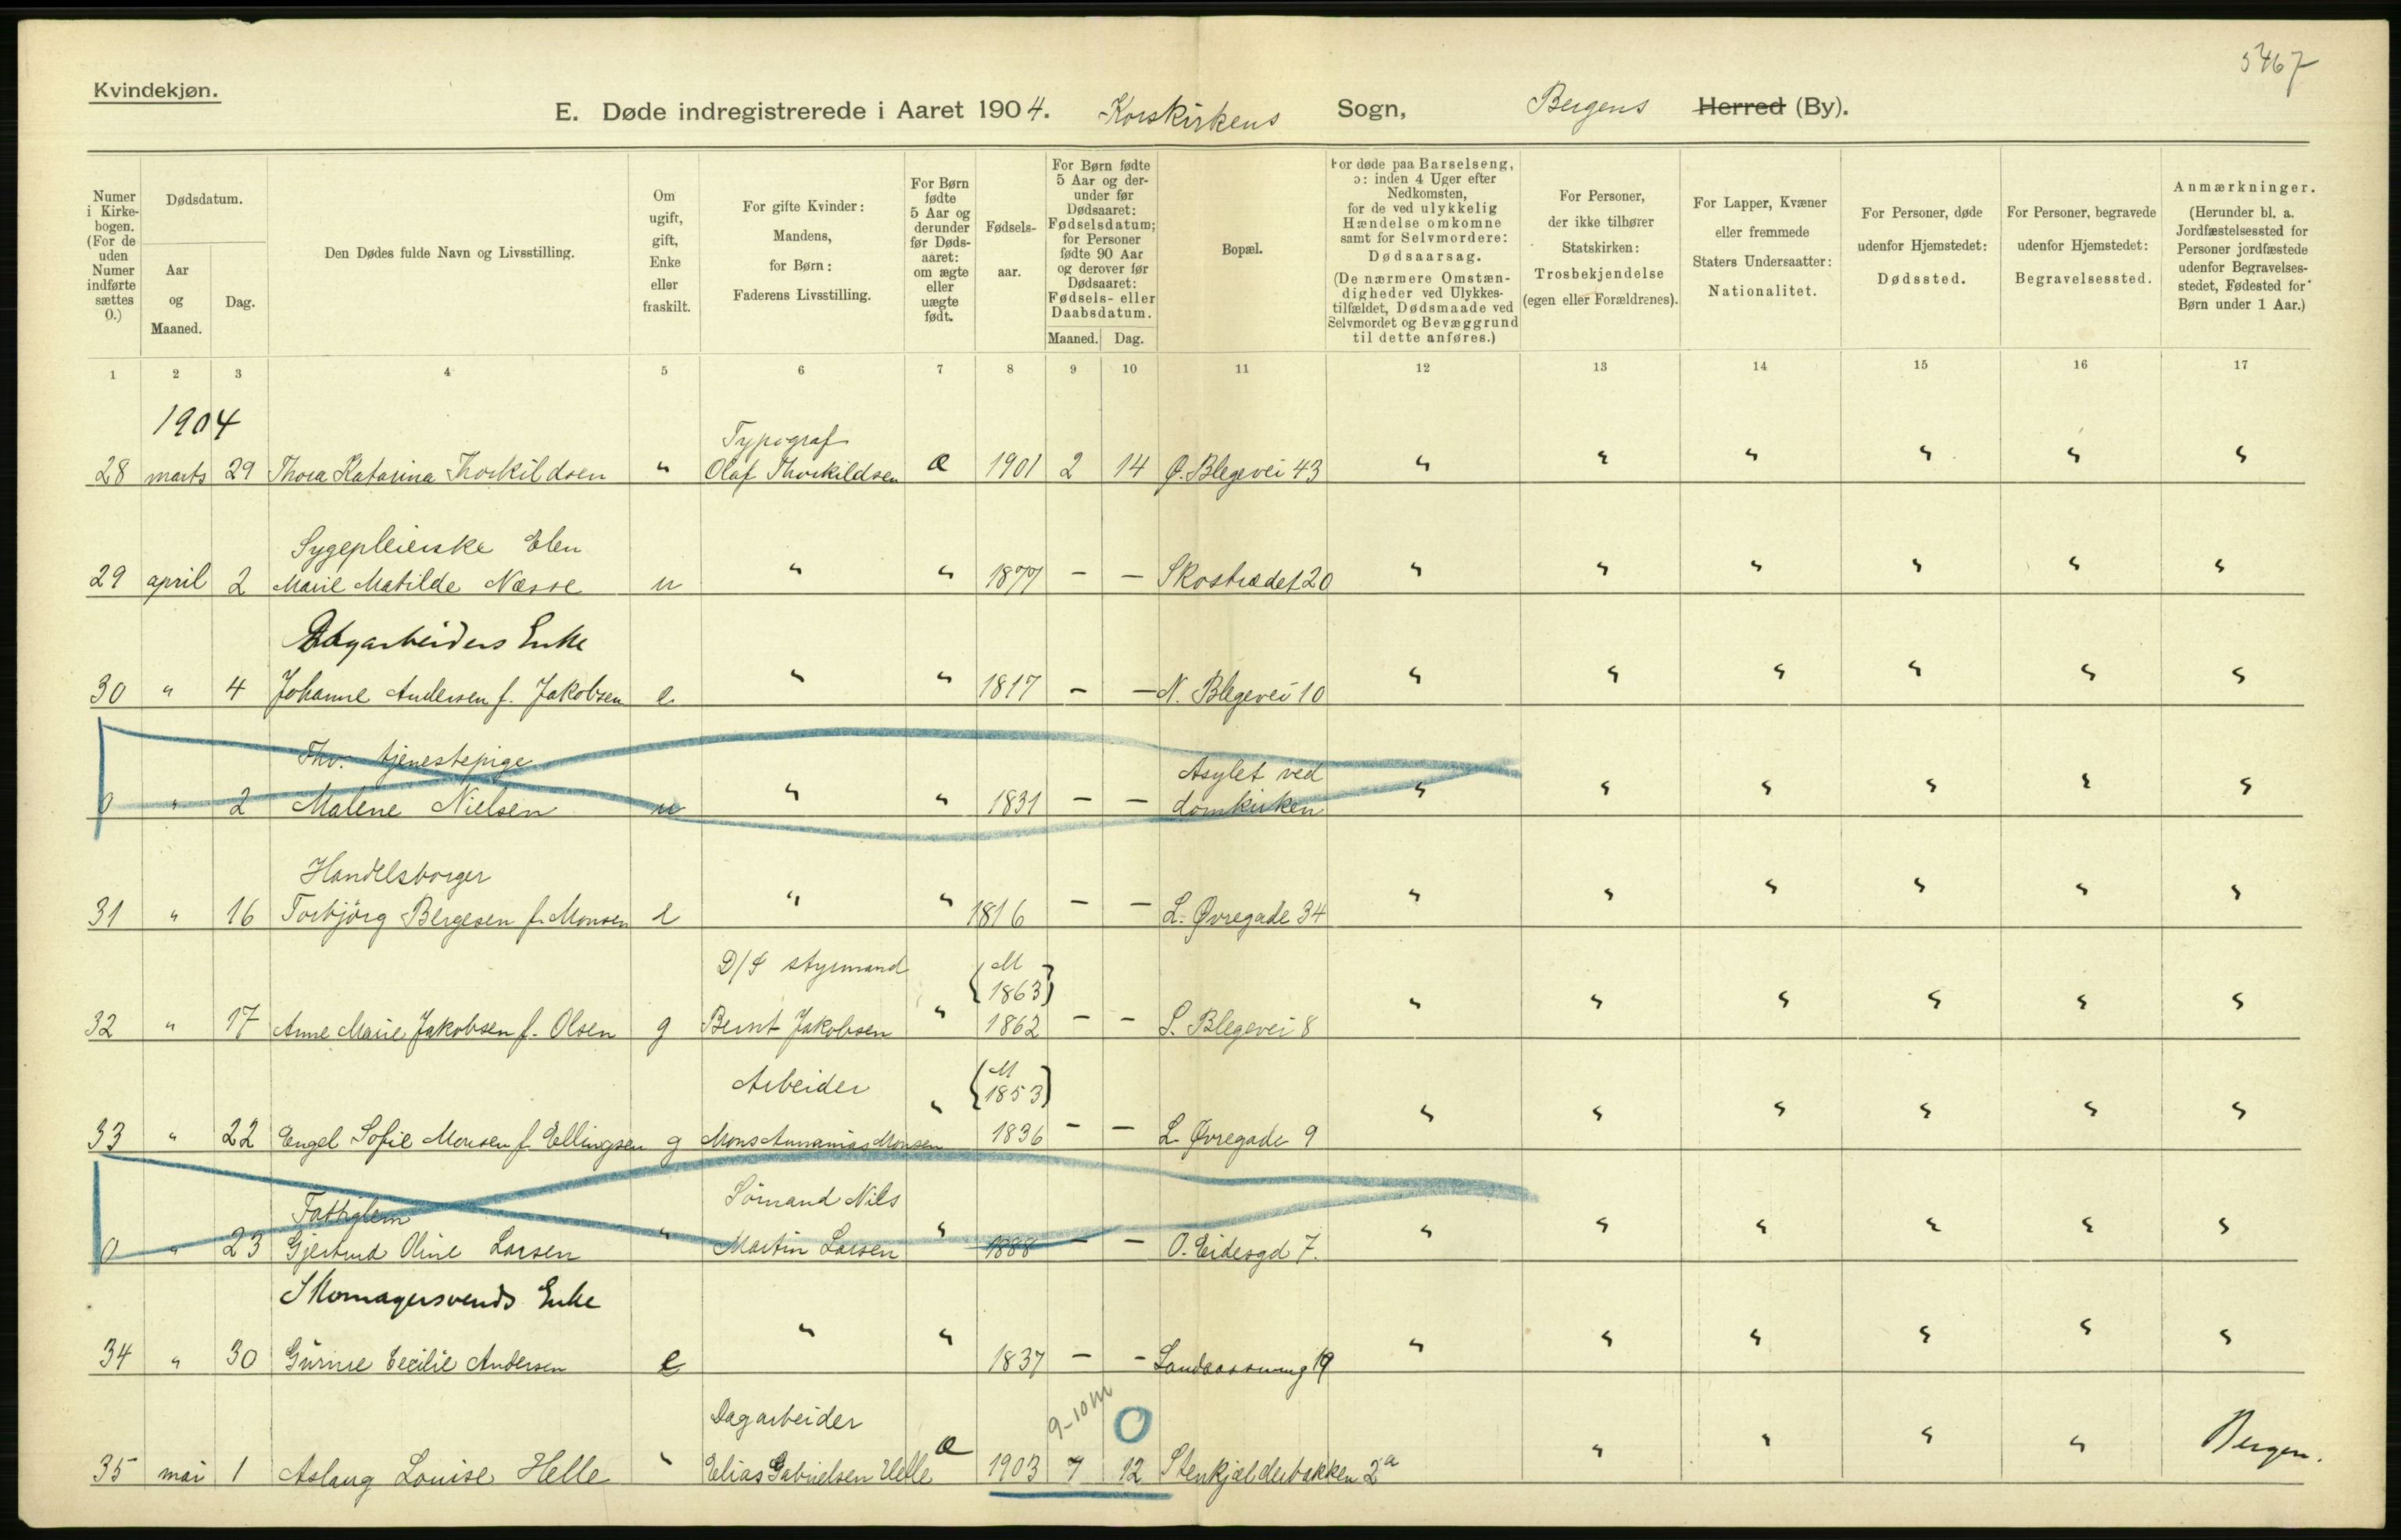 5467
Kvindekjøn.
E. Døde indregistrerede i Aaret 1904. Korskirkens Sogn, Bergens Herred (By).
Numer i Kirkebogen. (For de uden Numer indførte sættes 0.)
Dødsdatum.
Aar og Maaned.
Dag.
Den Dødes fulde Navn og Livsstilling.
Om ugift, gift, Enke eller fraskilt.
For gifte Kvinder: Mandens, for Børn: Faderens Livsstilling.
For Børn fødte 5 Aar og derunder før Dødsaaret: om ægte eller uægte født.
Fødselsaar.
For Børn fødte 5 Aar og derunder før Dødsaaret: Fødselsdatum; for Personer fødte 90 Aar og derover før Dødsaaret: Fødsels- eller Daabsdatum.
Maaned. Dag.
Bopæl.
For døde paa Barselseng, ɔ: inden 4 Uger efter Nedkomsten, for de ved ulykkelig Hændelse omkomne samt for Selvmordere: Dødsaarsag.
(De nærmere Omstændigheder ved Ulykkestilfældet, Dødsmaade ved Selvmordet og Bevæggrund til dette anføres.)
For Personer, der ikke tilhører Statskirken: Trosbekjendelse (egen eller Forældrenes).
For Lapper, Kvæner eller fremmede Staters Undersaatter: Nationalitet.
For Personer, døde udenfor Hjemstedet: Dødssted.
For Personer, begravede udenfor Hjemstedet: Begravelsessted.
Anmærkninger. (Herunder bl. a. Jordfæstelsessted for Personer jordfæstede udenfor Begravelsesstedet, Fødested for Børn under 1 Aar.)
1 2 3 4 5 6 7 8 9 10 11 12 13 14 15 16 17
1904
Typograf
28 marts 29 Thora Katarina Thorkildsen " Olaf Thorkildsen æ 1901 2 14 Ø. Blegevei 43 " " " " " "
Sygepleierske Elen
29 april 2 Marie Matilde Næsse u " " 1877 – – Skostrædet 20 " " " " " "
Dagarbeiders Enke
30 " 4 Johanne Andersen f. Jakobsen e " " 1817 – – N. Blegevei 10 " " " " " "
Fhv. tjenestepige Asylet ved
0 " 2 Malene Nielsen u " " 1831 – – domkirken " " " " " "
Handelsborger
31 " 16 Torbjörg Bergesen f. Monsen e " " 1816 – – L. Øvregade 34 " " " " " "
D/S styrmand {M 1863}
32 " 17 Anne Marie Jakobsen f. Olsen g Bernt Jakobsen " 1862 – – S. Blegevei 8 " " " " " "
Arbeider {M 1853}
33 " 22 Engel Sofie Monsen f. Ellingsen g Mons Annanias Monsen " 1836 – – L. Øvregade 9 " " " " " "
Fattiglem Sömand Nils
0 " 23 Gjertrud Oline Larsen " Martin Larsen " 1888 – – O. Eidesgd 7. " " " " " "
Skomagersvends Enke
34 " 30 Gurine Cecilie Andersen e " " 1837 – – Landaassving 19 " " " " " "
Dagarbeider 9-10 M 0
35 mai 1 Aslaug Louise Helle " Elias Gabrielsen Helle æ 1903 7 12 Stenkjælderbakken 2a " " " " Bergen.